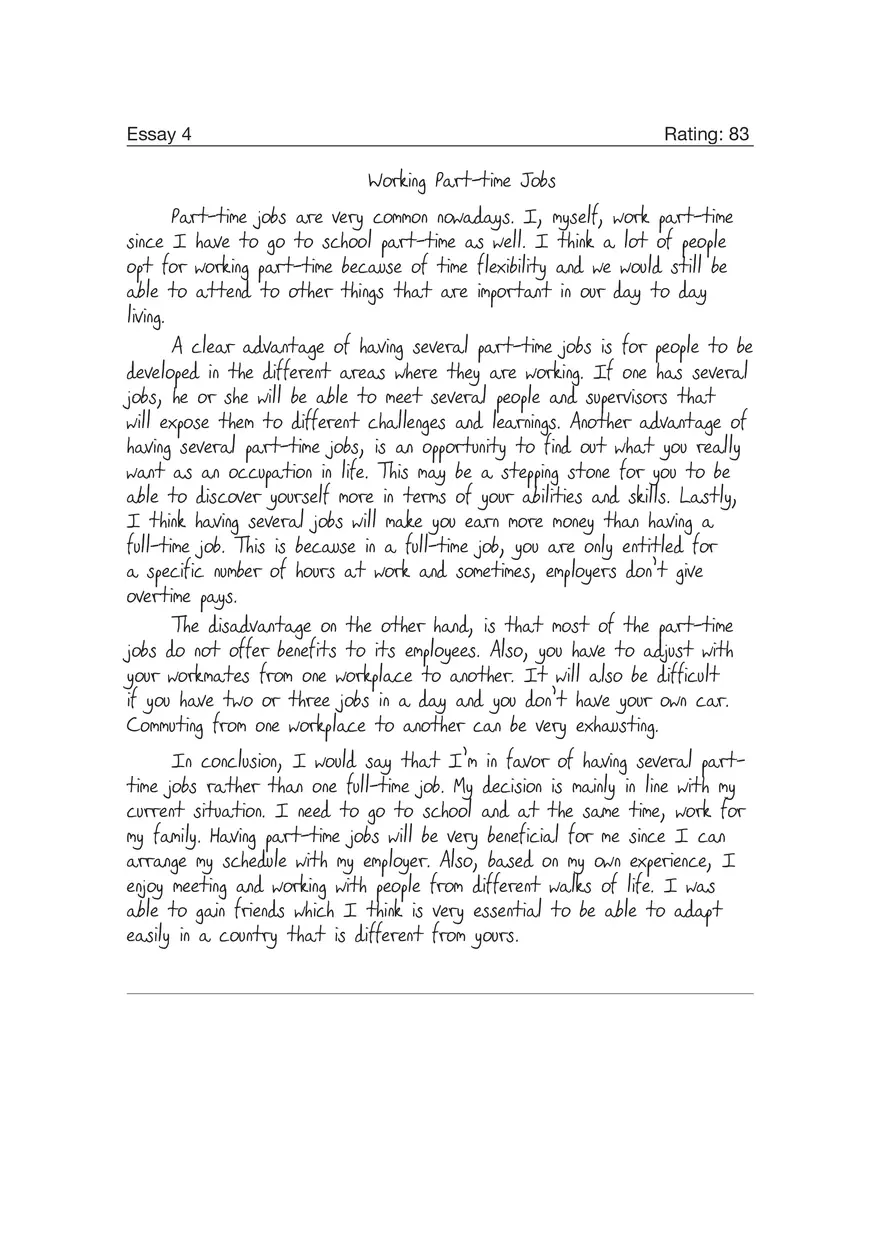 Essay 4 Rating: 83
Working Part-time Jobs
Part-time jobs are very common nowadays. I, myself, work part-time
since I have to go to school part-time as well. I think a lot of people
opt for working part-time because of time flexibility and we would still be
able to attend to other things that are important in our day to day
living.
A clear advantage of having several part-time jobs is for people to be
developed in the different areas where they are working. If one has several
jobs, he or she will be able to meet several people and supervisors that
will expose them to different challenges and learnings. Another advantage of
having several part-time jobs, is an opportunity to find out what you really
want as an occupation in life. This may be a stepping stone for you to be
able to discover yourself more in terms of your abilities and skills. Lastly,
I think having several jobs will make you earn more money than having a
full-time job. This is because in a full-time job, you are only entitled for
a specific number of hours at work and sometimes, employers don't give
overtime pays.
The disadvantage on the other hand, is that most of the part-time
jobs do not offer benefits to its employees. Also, you have to adjust with
your workmates from one workplace to another. It will also be difficult
if you have two or three jobs in a day and you don't have your own car.
Commuting from one workplace to another can be very exhausting.
In conclusion, I would say that I'm in favor of having several part-
time jobs rather than one full-time job. My decision is mainly in line with my
current situation. I need to go to school and at the same time, work for
my family. Having part-time jobs will be very beneficial for me since I can
arrange my schedule with my employer. Also, based on my own experience, I
enjoy meeting and working with people from different walks of life. I was
able to gain friends which I think is very essential to be able to adapt
easily in a country that is different from yours.